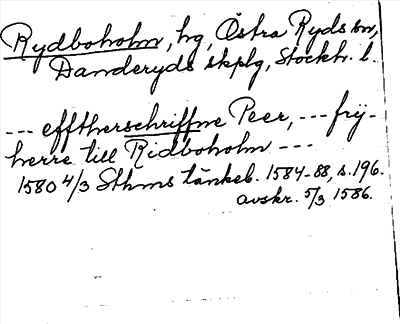 Rydboholm, hg, Östra Ryds sn,
Danderyds skplg, Stockh. l.
--- efftherschriffne Peer, --- frÿ-
herre till Ridboholm ---
1580 4/3 Sthms tänkeb. 1584-88, s. 196.
avskr. 5/3 1586.